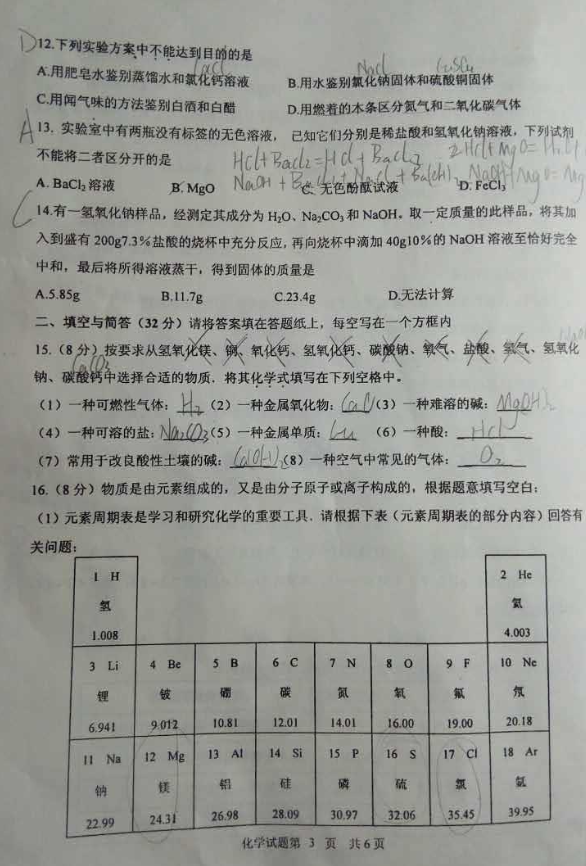 D 12.下列实验方案中不能达到目的的是
CaCl NaCl CuSO4
A.用肥皂水鉴别蒸馏水和氯化钙溶液 B.用水鉴别氯化钠固体和硫酸铜固体
C.用闻气味的方法鉴别白酒和白醋 D.用燃着的木条区分氮气和二氧化碳气体
A 13. 实验室中有两瓶没有标签的无色溶液， 已知它们分别是稀盐酸和氢氧化钠溶液，下列试剂
不能将二者区分开的是 HCl+BaCl2=HCl+BaCl2 2HCl+MgO=
A. BaCl₂ 溶液 B. MgO C. 无色酚酞试液 D. FeCl₃
C 14.有一氢氧化钠样品，经测定其成分为 H₂O、Na₂CO₃ 和 NaOH。取一定质量的此样品，将其加
入到盛有 200g7.3%盐酸的烧杯中充分反应,再向烧杯中滴加 40g10%的 NaOH 溶液至恰好完全
中和，最后将所得溶液蒸干，得到固体的质量是
A.5.85g B.11.7g C.23.4g D.无法计算
二、填空与简答（32 分）请将答案填在答题纸上，每空写在一个方框内
15.（8 分）按要求从氢氧化镁、铜、氧化钙、氢氧化钙、碳酸钠、氧气、盐酸、氢气、氢氧化
CaCO3
钠、碳酸钙中选择合适的物质．将其化学式填写在下列空格中。
（1）一种可燃性气体：H2（2）一种金属氧化物：CaO（3）一种难溶的碱：Mg(OH)2
（4）一种可溶的盐：Na2CO3（5）一种金属单质：Cu （6）一种酸：HCl
（7）常用于改良酸性土壤的碱：Ca(OH)2（8）一种空气中常见的气体：O2
16.（8 分）物质是由元素组成的，又是由分子原子或离子构成的，根据题意填写空白：
（1）元素周期表是学习和研究化学的重要工具．请根据下表（元素周期表的部分内容）回答有
关问题：
1 H 2 He
氢 氦
1.008 4.003
3 Li 4 Be 5 B 6 C 7 N 8 O 9 F 10 Ne
锂 铍 硼 碳 氮 氧 氟 氖
6.941 9.012 10.81 12.01 14.01 16.00 19.00 20.18
11 Na 12 Mg 13 Al 14 Si 15 P 16 S 17 Cl 18 Ar
钠 镁 铝 硅 磷 硫 氯 氩
22.99 24.31 26.98 28.09 30.97 32.06 35.45 39.95
化学试题第 3 页 共 6 页